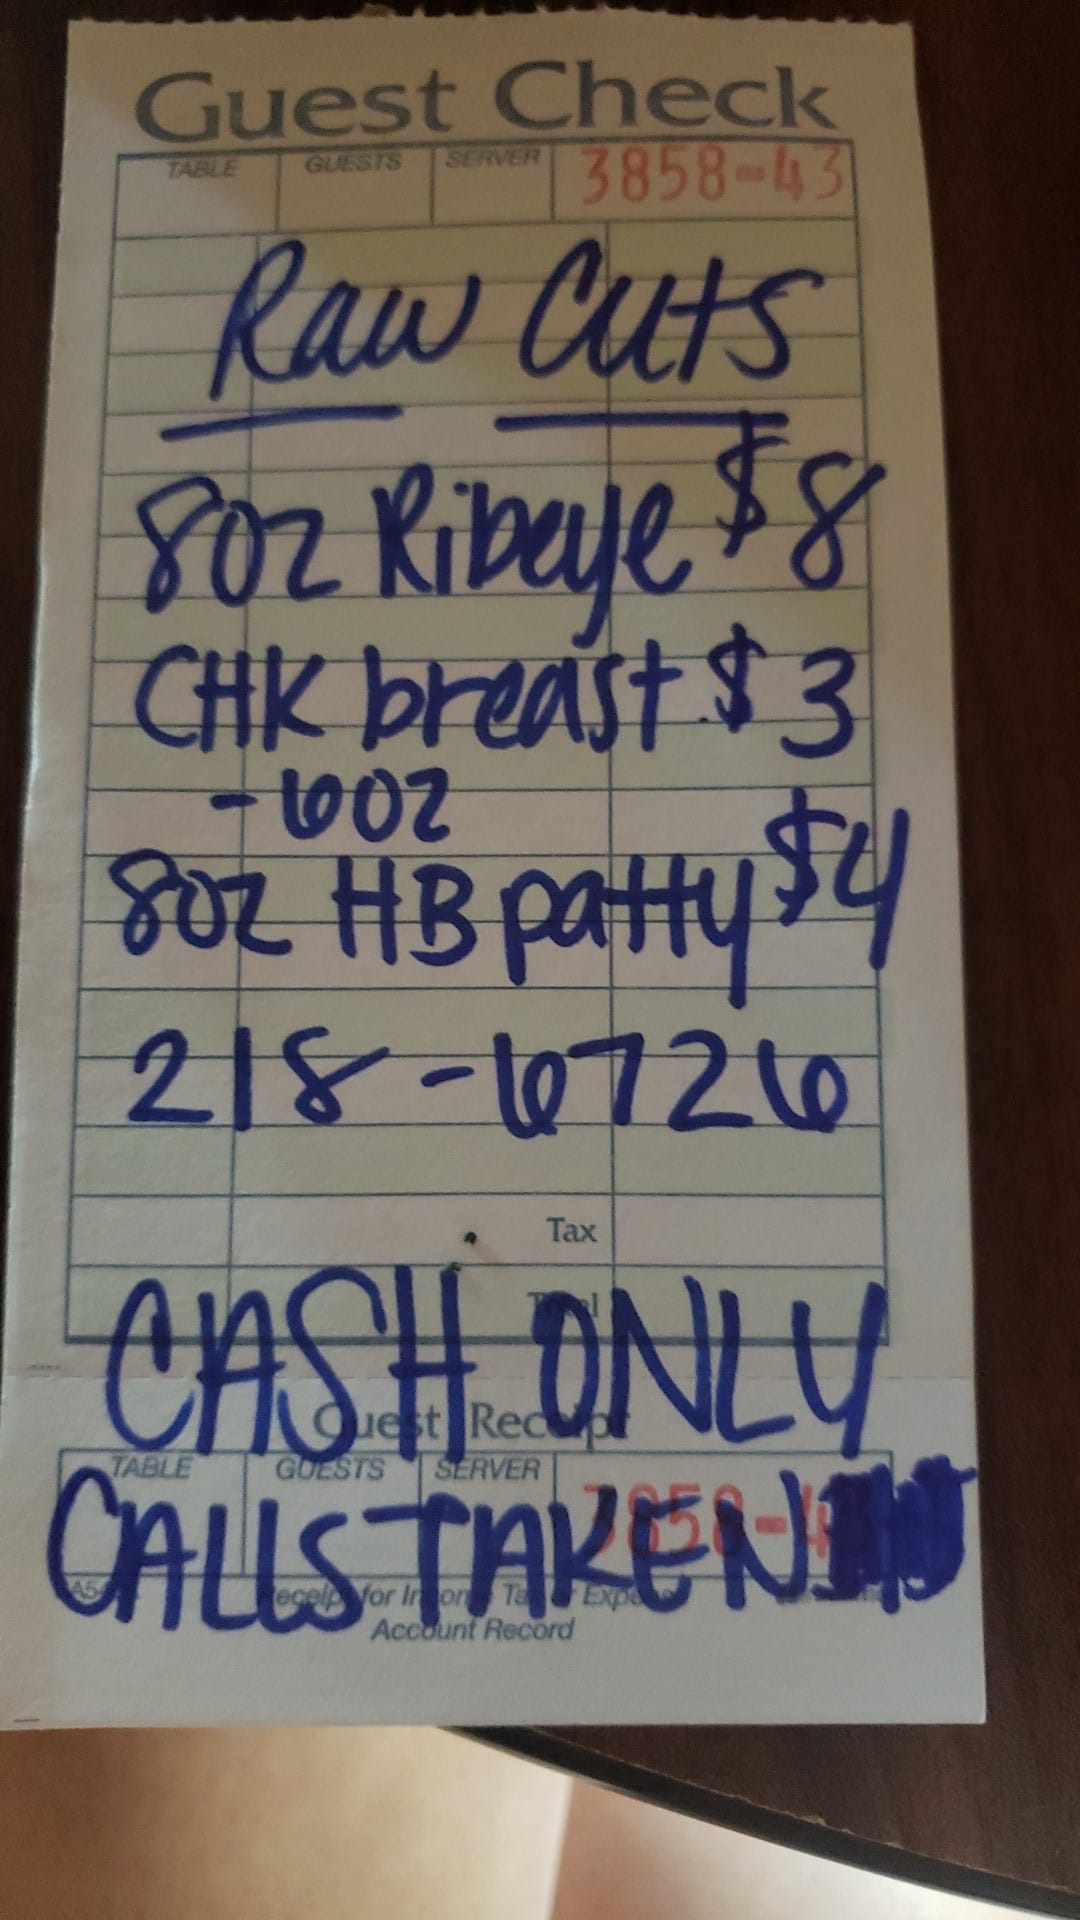 Guest Check
TABLE GUESTS SERVER 3858-43
Raw Cuts
8oz Ribeye $8
CHK breast $3
-6oz
8oz HB patty $4
218-6726
Tax
Total
CASH ONLY
Guest Receipt
TABLE GUESTS SERVER 3858-43
CALLS TAKEN
Receipt for Income Tax or Expense
Account Record